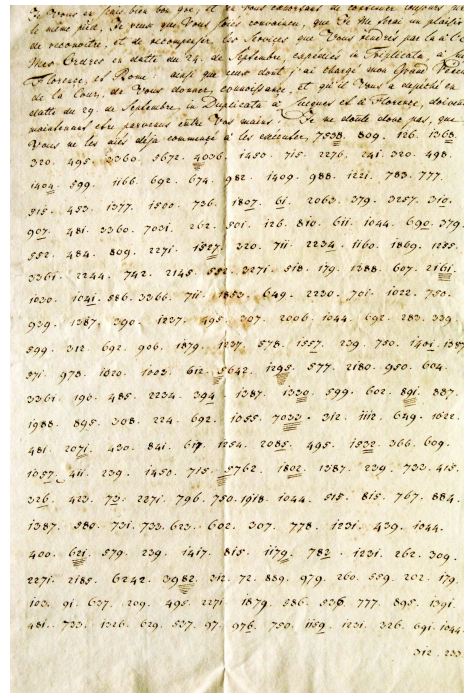 Je vous en sais bien bon gré, et je vous exhorte de continuer toujours sur
le même pied. Je veux que Vous soiés convaincu, que Je me ferai un plaisir
de reconnoitre, et de recompenser, les Services que Vous rendrés par là à l'
Mes Ordres en datte du 24. de Septembre, expediés in Triplicata, à
Florence, et Rome ainsi que ceux dont j'ai chargé mon Grand
de la Cour, de Vous donner, connoissance, et qu'il Vous a depeché en
datte du 29. de Septembre, in Duplicata à et à Florence, doivent
maintenant etre parvenus entre Vos mains. Je ne doute donc pas, que
Vous ne les aiés déja commencé à les executer, 7538. 809. 126. 1368.
320. 495. 3360. 5672. 4036. 1453. 715. 2276. 241. 320. 498.
1404. 599. 1166. 692. 674. 982. 1409. 988. 1221. 783. 777.
515. 453. 1377. 1500. 736. 1807. 61. 2063. 379. 3257. 310.
907. 481. 3360. 7031. 262. 501. 126. 810. 611. 1044. 690. 379.
552. 484. 809. 2271. 1527. 320. 711. 2234. 1160. 1869. 1285.
3361. 2244. 742. 2145. 552. 3271. 518. 179. 1388. 607. 2161.
1030. 1041. 586. 3366. 711. 1853. 649. 2230. 701. 1022. 750.
939. 1387. 390. 1237. 495. 307. 2006. 1044. 692. 283. 339.
599. 312. 692. 906. 1879. 1237. 578. 1557. 239. 750. 1401. 1387.
971. 978. 1020. 1003. 612. 5642. 1295. 577. 2180. 950. 604.
3361. 190. 485. 2234. 394. 1387. 1330. 599. 602. 891. 887.
1988. 895. 308. 224. 692. 1355. 7033. 312. 1112. 649. 1622.
481. 2071. 430. 841. 617. 1254. 2085. 495. 1532. 366. 609.
1057. 411. 239. 1450. 715. 5762. 1802. 1387. 239. 733. 415.
326. 423. 73. 2271. 796. 750. 1918. 1044. 515. 815. 767. 884.
1387. 580. 731. 733. 623. 602. 307. 778. 1231. 439. 1044.
400. 621. 579. 239. 1417. 815. 1179. 782. 1231. 262. 309.
2271. 2185. 6242. 3982. 312. 72. 889. 979. 260. 559. 202. 179.
103. 91. 637. 209. 495. 2271. 1879. 586. 536. 777. 895. 1391.
481. 733. 1326. 629. 537. 97. 976. 750. 1159. 1231. 326. 691. 1044.
312. 233.